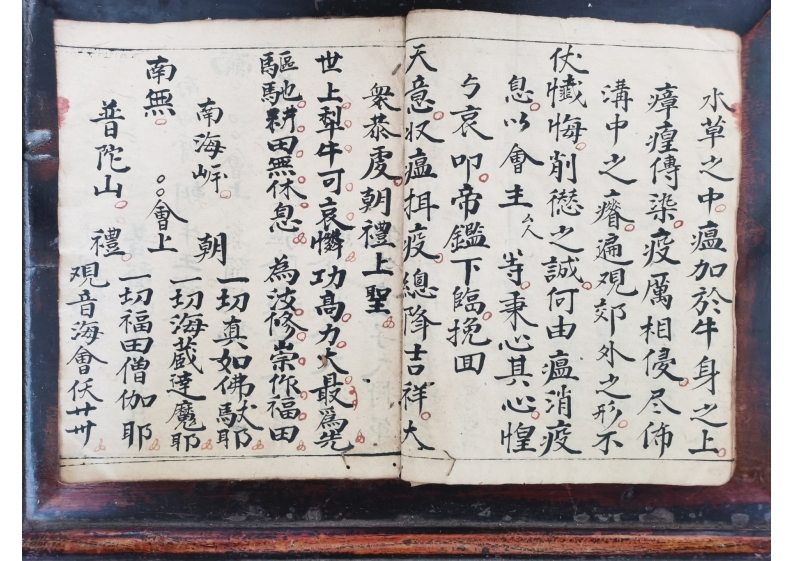 水草之中瘟加於牛身之上
瘴瘟傳染疫厲相侵尽佈
溝中之瘠遍观郊外之形不
仗懺悔削愆之誠何由瘟消疫
息以會主厶人等秉心其心惶
ㄅ哀叩帝鑑下臨挽回
天意收瘟揖疫總降吉祥大
衆恭虔朝禮上聖
世上犁牛可哀憐功高力大最為先
驅馳耕田無休息為汝修崇作福田
南海岍朝一切真如佛馱耶
一切海藏達魔耶
南無會上
普陀山禮一切福田僧伽耶
观音海會仸廾卅